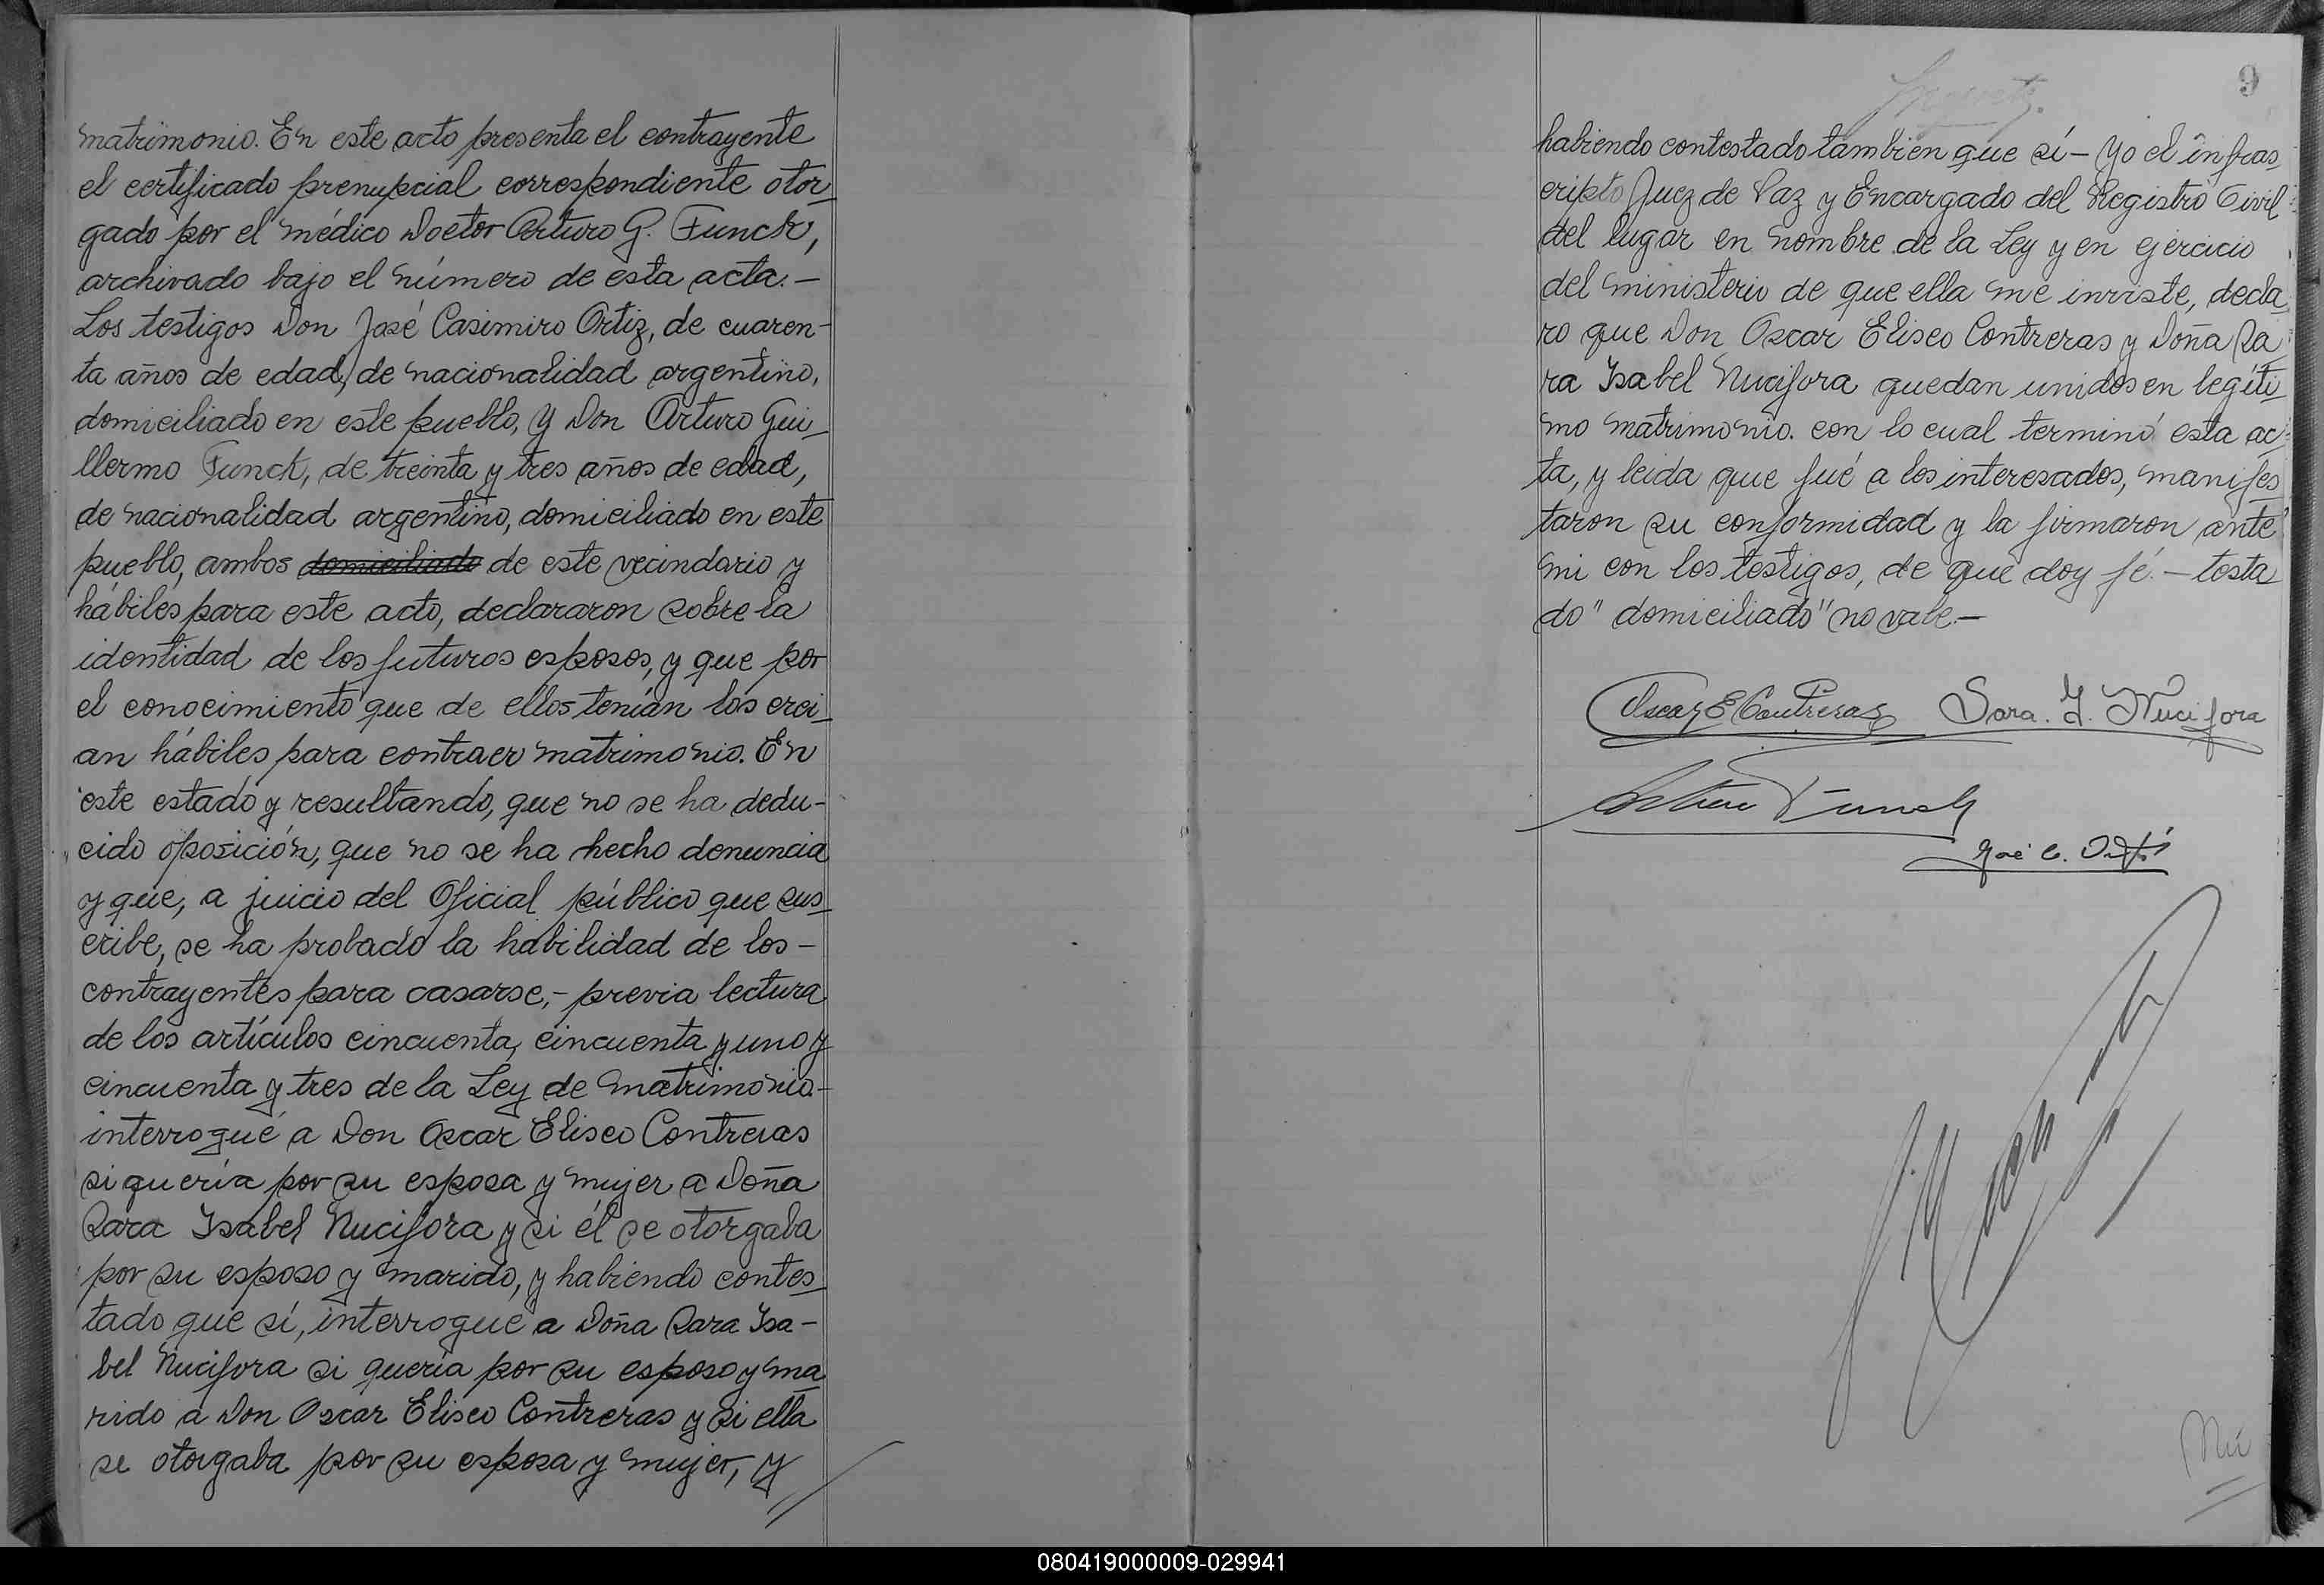 matrimonio. En este acto presenta el contrayente
el certificado prenupcial correspondiente otor_
gado por el médico Doctor Arturo G. Funck,
archivado bajo el número de esta acta.—
Los testigos Don José Casimiro Ortiz, de cuaren-
ta años de edad, de nacionalidad argentino,
domiciliado en este pueblo, y Don Arturo Gui_
llermo Funck, de treinta y tres años de edad,
de nacionalidad argentino, domiciliado en este
pueblo, ambos domiciliado de este vecindario y
hábiles para este acto, declararon sobre la
identidad de los futuros esposos, y que por
el conocimiento que de ellos tenían los creí_
an hábiles para contraer matrimonio. En
este estado y resultando, que no se ha dedu-
cido oposición, que no se ha hecho denuncia
y que, a juicio del Oficial público que sus_
cribe, se ha probado la habilidad de los -
contrayentes para casarse,- previa lectura
de los artículos cincuenta, cincuenta y uno y
cincuenta y tres de la Ley de matrimonio.-
interrogué a Don Oscar Eliseo Contreras
si quería por su esposa y mujer a Doña
Sara Isabel Nucifora y si él se otorgaba
por su esposo y marido, y habiendo contes_
tado que sí, interrogué a Doña Sara Isa-
bel Nucifora si quería por su esposo y ma_
rido a Don Oscar Eliseo Contreras y si ella
se otorgaba por su esposa y mujer, y
9
habiendo contestado tambien que sí - Yo el infras_
cripto Juez de Paz y Encargado del Registro Civil
del lugar en nombre de la Ley y en ejercicio
del ministerio de que ella me inviste, decla_
ro que Don Oscar Eliseo Contreras y Doña Sa_
ra Isabel Nucifora quedan unidos en legíti_
mo matrimonio. con lo cual terminó esta ac_
ta, y leida que fué a los interesados, manifes_
taron su conformidad y la firmaron ante
mi con los testigos, de que doy fé.- testa_
do "domiciliado" no vale.-
Oscar E Contreras Sara. I. Nucifora
Arturo Funck
José C. Ortiz
080419000009-029941